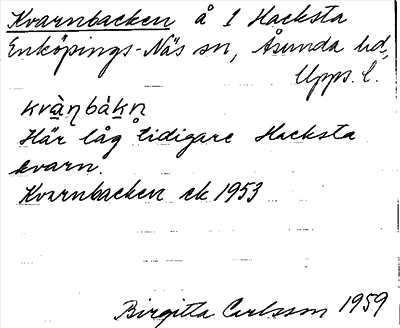 Kvarnbacken å 1 Hacksta
Enköpings-Näs sn, Åsunda hd,
Upps. l.
kvàṇbàkn
Här låg tidigare Hacksta
kvarn.
Kvarnbacken ek 1953
Birgitta Carlsson 1959